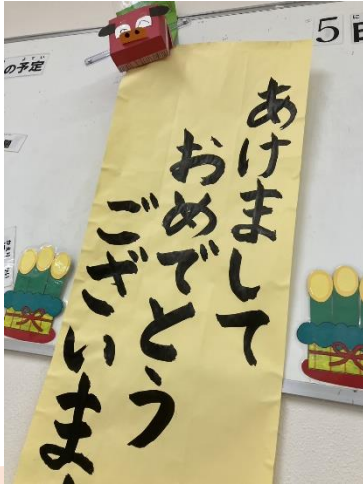 の予定
5日
あけまして
おめでとう
ございま